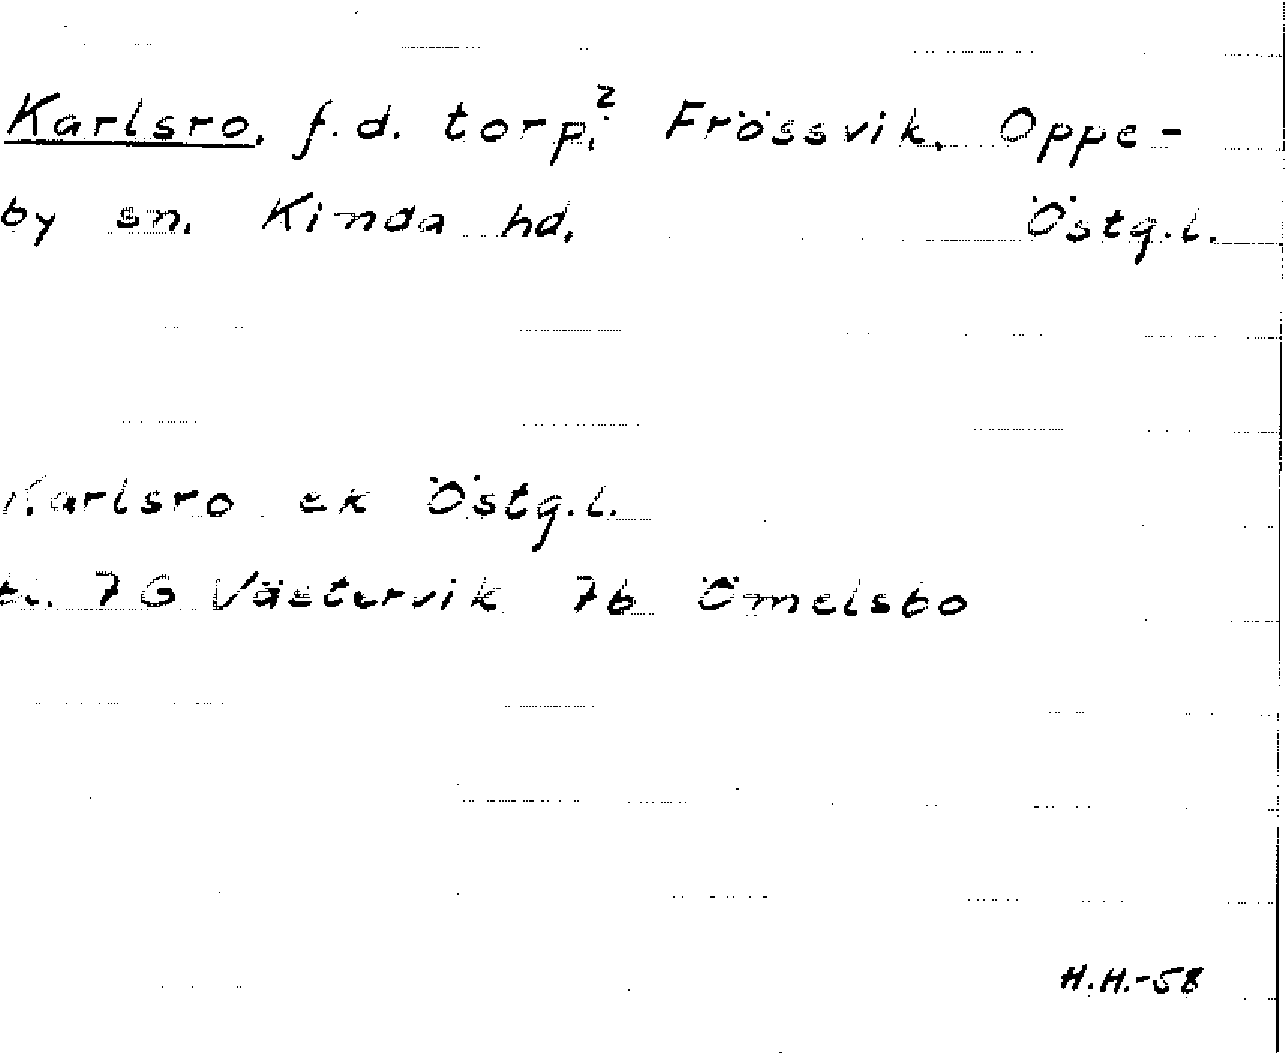 Karlsro. f.d. torp.² Frössvik. Oppe-
by sn. Kinda hd. Östg.l.
Karlsro ek Östg.l.
bl. 7G Västervik 7b Ömelsbo
H.H.-58